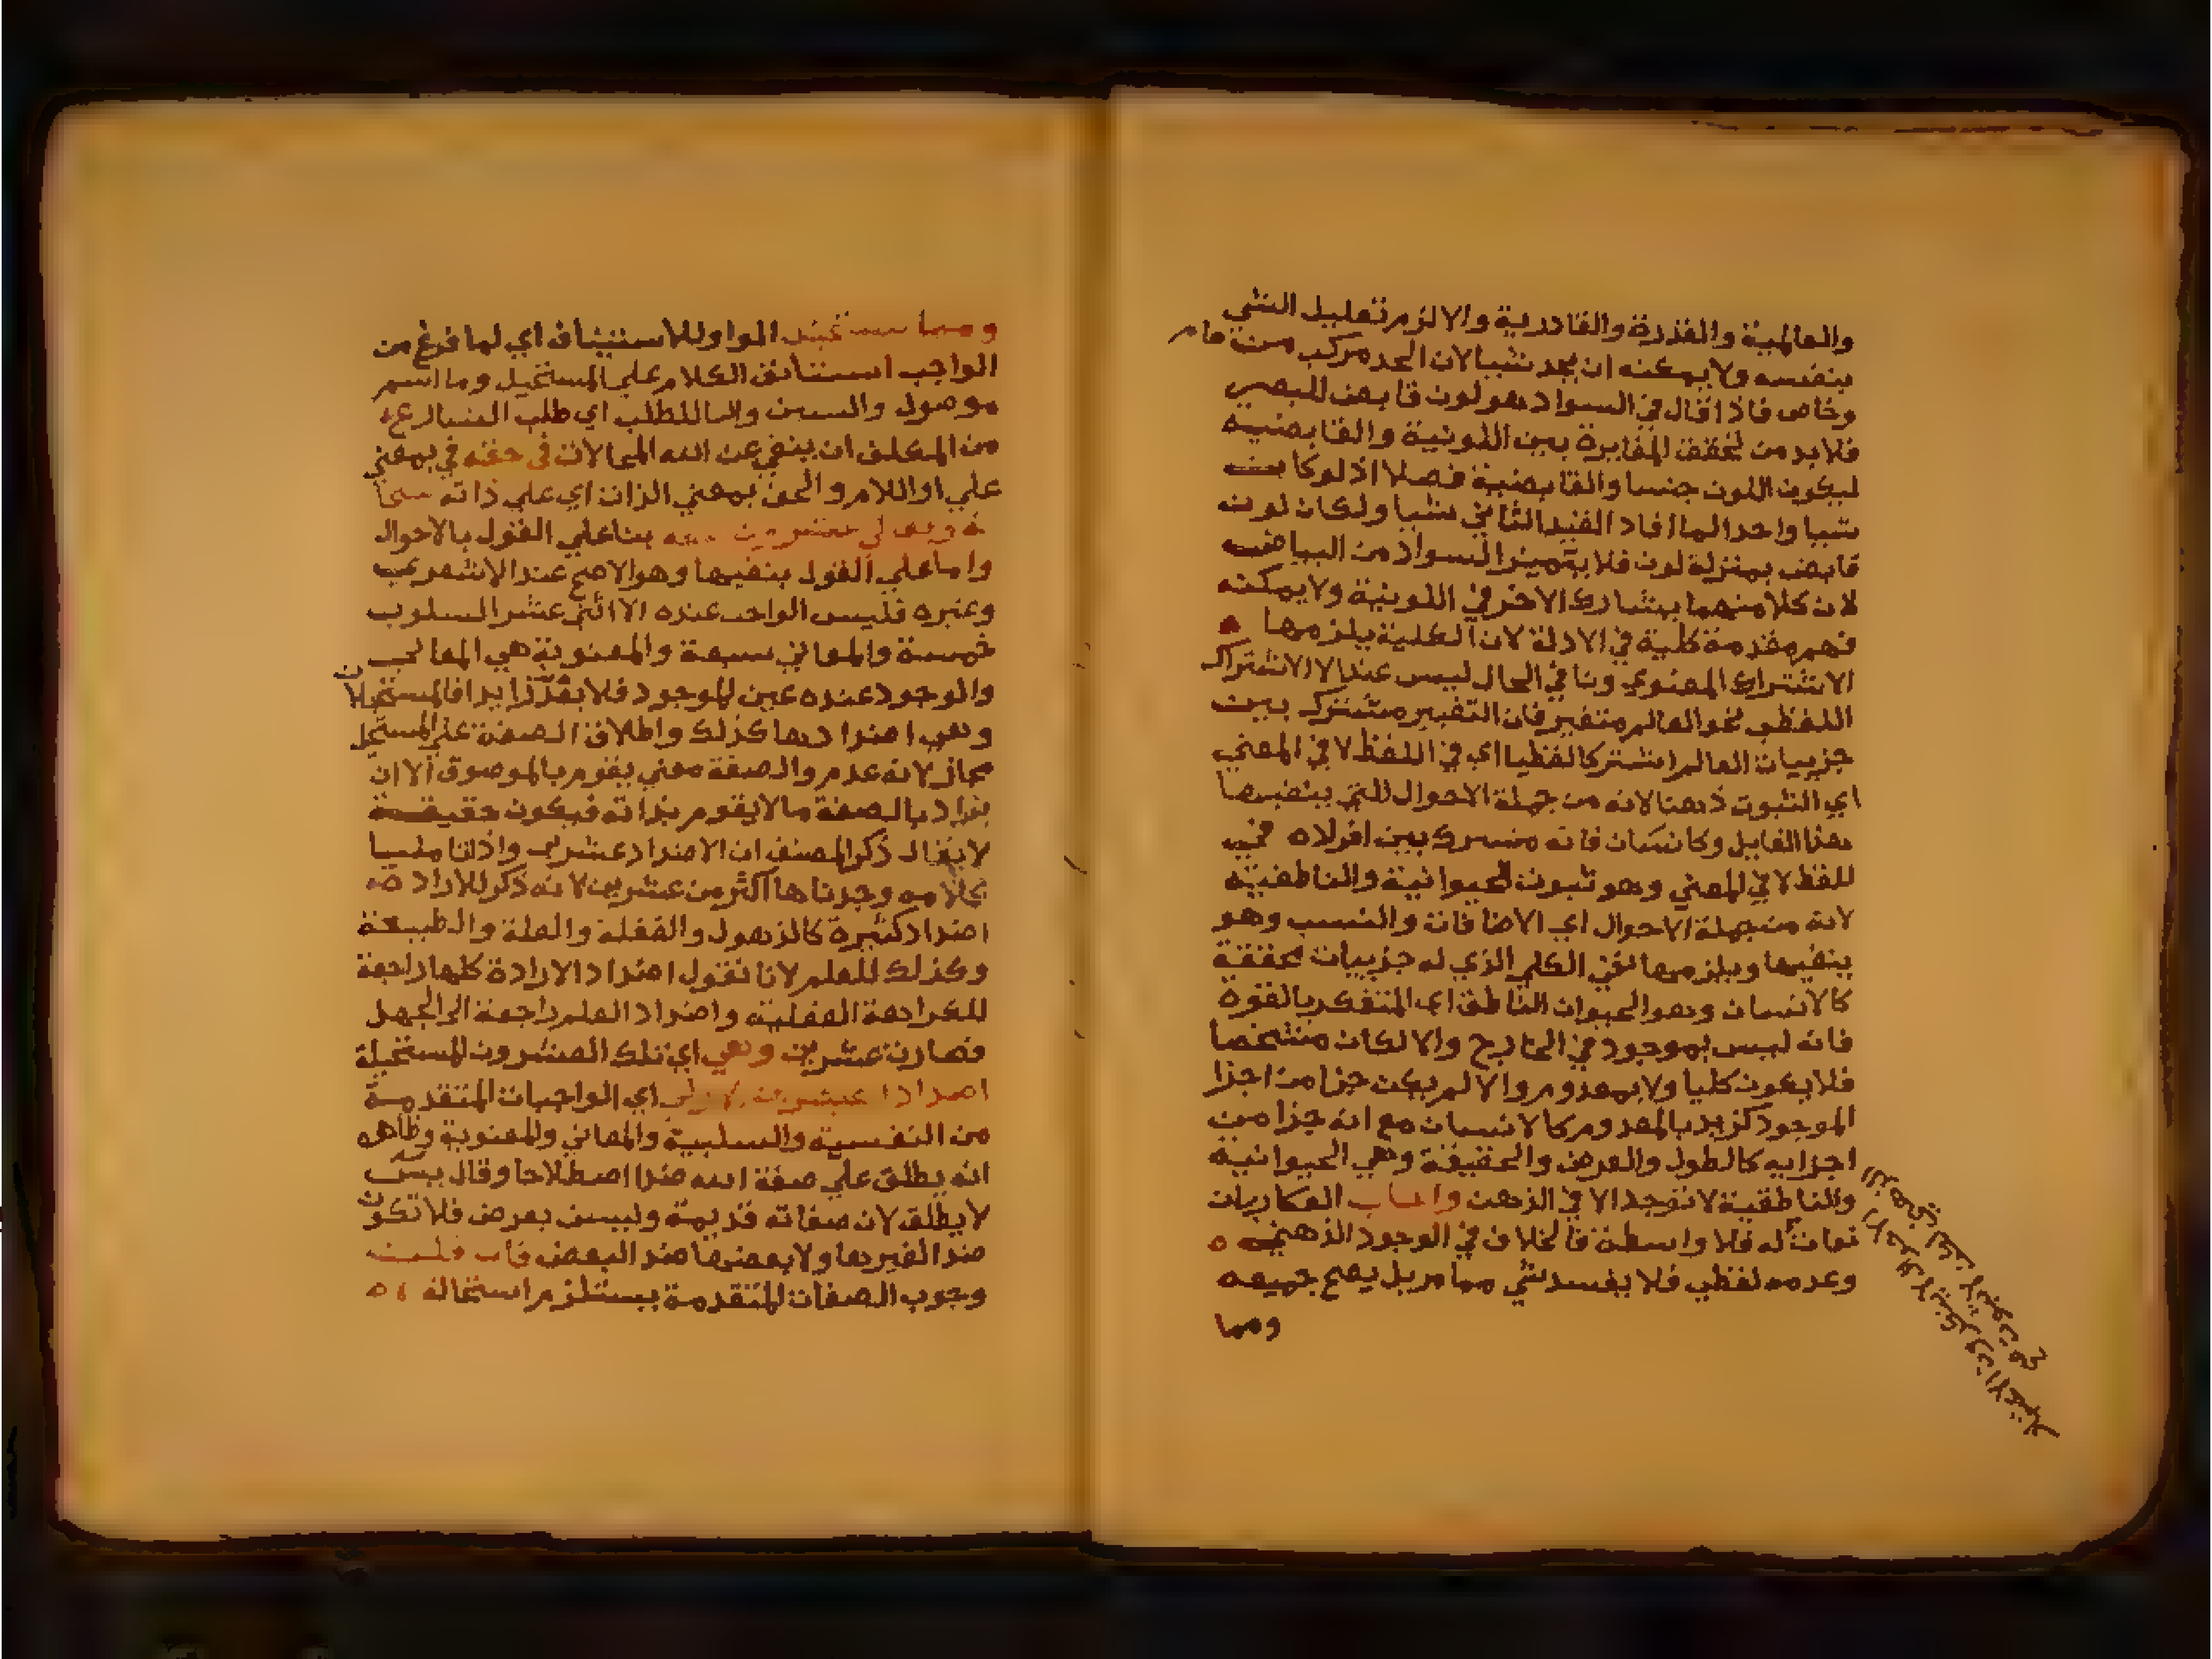 والعالمية والقدرة والقادرية والا لزم تعليل الشي
بنفسه ولا يمكنه ان يحد شيا لان الحد مركب من عام
وخاص فاذا قال في السواد هو لون قابض للبصر
فلا بد من تحقق المغايرة بين اللونية والقابضية
ليكون اللون جنسا والقابضية فصلا اذ لو كانت
شيا واحدا لما افاد القيد الثاني شيا ولكان لون
قابض بمنزلة لون فلا يتميز السواد من البياض
لان كلا منهما يشارك الاخر في اللونية ولا يمكنه
فهم مقدمة كلية في الادلة لان الكلية يلزمها
الاشتراك المعنوي ونافي الحال ليس عنده الا الاشتراك
اللفظي نحو العالم متغير فان التغيير مشترك بين
جزييات العالم اشتركا لفظيا اي في اللفظ لا في المعني
اي الثبوت ذهنا لانه من جملة الاحوال التي ينفيها
هذا القايل وكانسان فانه مشترك بين افراده في
اللفظ لا في المعني وهو ثبوت الحيوانية والناطقية
لانه من جملة الاحوال اي الاضافات والنسب وهو
ينفيها ويلزمها نفي الكلي الذي له جزييات محققة
كالانسان وهو الحيوان الناطق اي المتفكر بالقوة
فانه ليس بموجود في الخارج والا لكان متشخصا
فلا يكون كليا ولا بمعدوم والا لم يكن جزا من اجزا
الموجود كزيد بالمعدوم كالانسان مع انه جزا من
اجزايه كالطول والعرض والحقيقة وهي الحيوانية
والناطقية لا توجد الا في الذهن
له فلا واسطة فالخلاف في الوجود الذهني
وعدمه لفظي فلا يفسد شي مما مر بل يصح جميعه
ومما
ومما يستحيل الواو للاستيناف اي لما فرغ من
الواجب استانف الكلام علي المستحيل وما اسم
موصول والسين والتا للطلب اي طلب الشارع
من المكلف ان ينفي عن الله المحالات في حقه في بمعني
علي او اللام والحق بمعني الذات اي علي ذاته
بنا علي القول بالاحوال
واما علي القول بنفيها وهو الاصح عند الاشعري
وغيره فليس الواجب عنده الا اثني عشر السلوب
خمسة والمعاني سبعة والمعنوية هي المعاني
والوجود عنده عين الموجود فلا يعد زايدا فالمستحيلات
وهي اضدادها كذلك واطلاق الصفة علي المستحيل
مجاز لانه عدم والصفة معني يقوم بالموصوف الا ان
يراد بالصفة ما لا يقوم بذاته فيكون حقيقة
لا يقال ذكر المصنف ان الاضداد عشرين واذا تاملنا
كلامه وجدناها اكثر من عشرين لانه ذكر للارادة
اضداد كثيرة كالذهول والغفلة والعلة والطبيعة
وكذلك للعلم لانا نقول اضداد الارادة كلها راجعة
للكراهة العقلية واضداد العلم راجعة الي الجهل
فصارت عشرين وهي اي تلك العشرون المستحيلة
اضداد العشرين الاولى اي الواجبات المتقدمة
من النفسية والسلبية والمعاني والمعنوية وظاهره
انه يطلق علي صفة الله ضدا اصطلاحا وقال يس
لا يطلق لان صفاته قديمة وليست بعرض فلا تكون
ضدا لغيرها ولا بعضها ضد البعض فان قلت
وجوب الصفات المتقدمة يستلزم استحالة